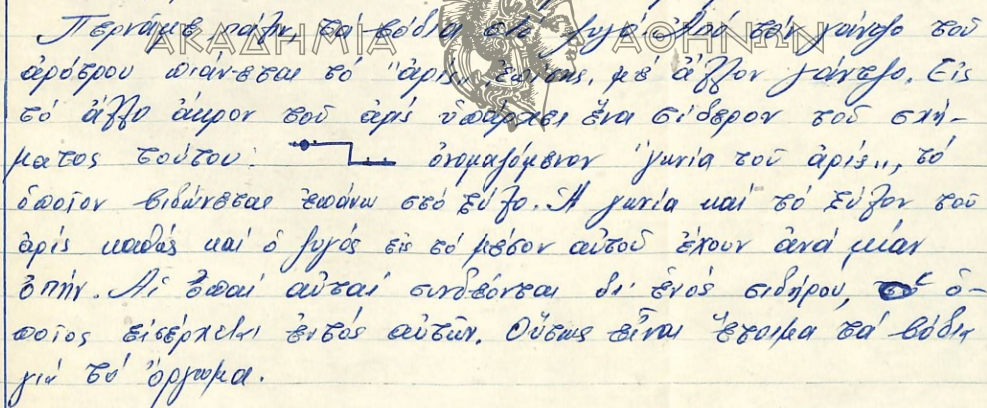 Περνάμε πάλι, τά βόδια στό ζυγό. Ἀπό τόν γάντζο τοῦ
ΑΚΑΔΗΜΙΑ ΑΘΗΝΩΝ
ἀρότρου πιάνεται τό "ἀρίς„, ἐπίσης, μέ ἄλλον γάντζο. Εἰς
τό ἄλλο ἄκρον τοῦ ἀρίς ὑπάρχει ἕνα σίδερον τοῦ σχή-
ματος τούτου: ὀνομαζόμενον "γωνία τοῦ ἀρίς„, τό
ὁποῖον βιδώνεται ἐπάνω στό ξύλο. Ἡ γωνία καί τό ξύλον τοῦ
ἀρίς καθώς καί ὁ ζυγός εἰς τό μέσον αὐτοῦ ἔχουν ἀνά μίαν
ὀπήν. Αἱ ὀπαί αὐταί συνδέονται δι' ἑνός σιδήρου, ὁ-
ποῖος εἰσέρχεται ἐντός αὐτῶν. Οὕτως εἶναι ἕτοιμα τά βόδια
γιά τό ὄργωμα.